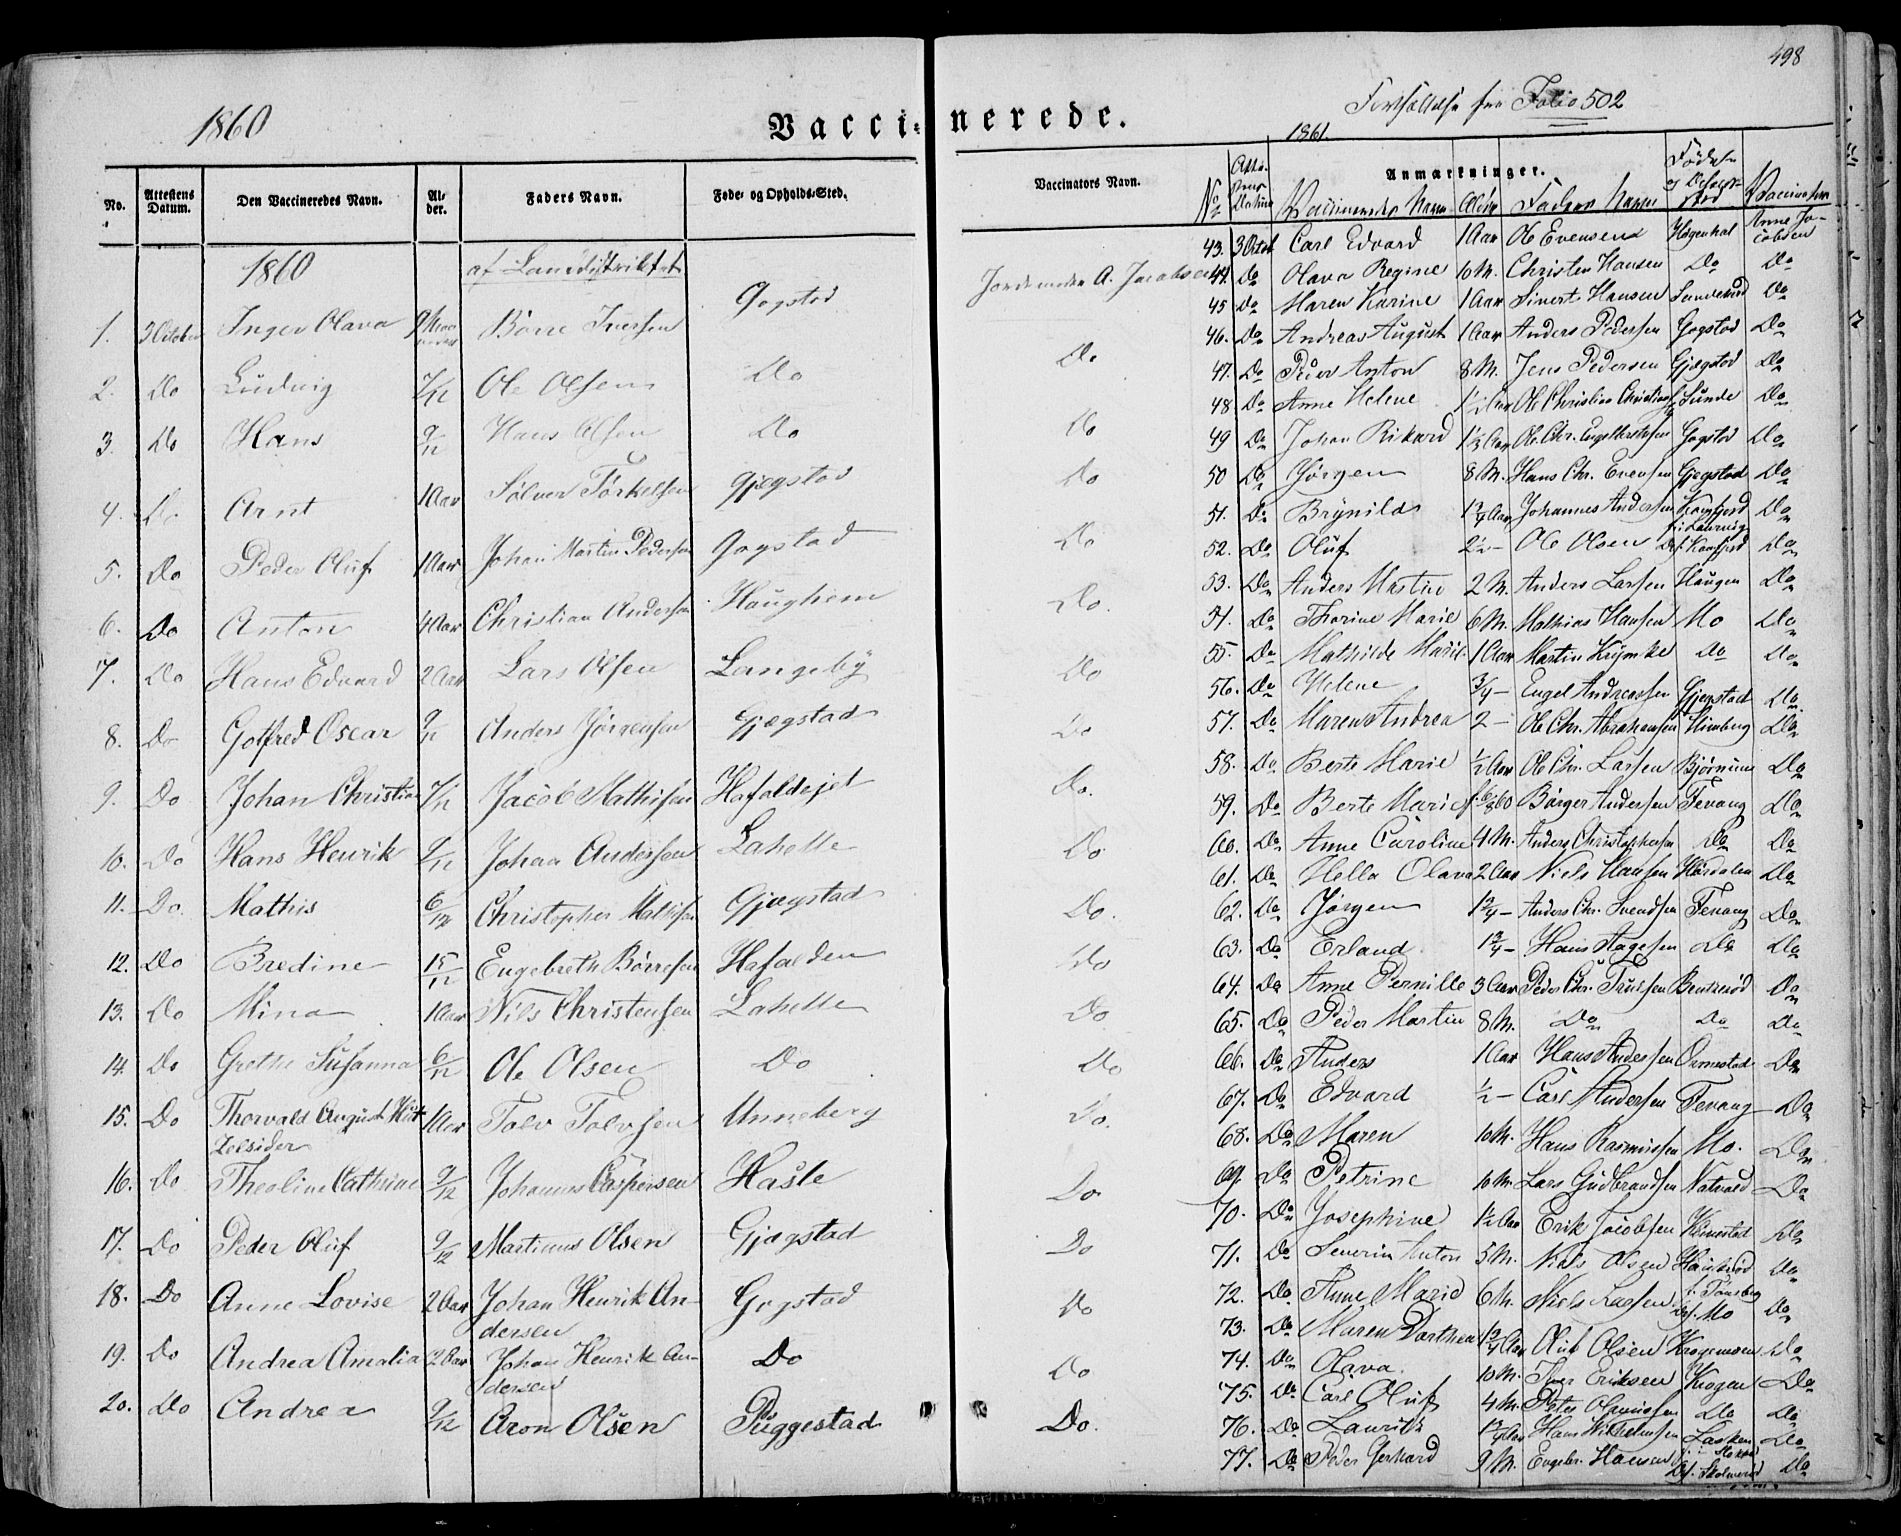 498
1860
Vaccinerede.
Fortsættelse fra Folio 502
1861.
No. Attestens Datum. Den Vaccineredes Navn. Alder. Faders Navn. Føde- og Opholds-Sted. Vaccinators Navn. Anmærkninger.
1860 af Landdistriktet
1. 3 October Inger Olava Børre Iversen Gogstad Jordemoder A. Jacobsen
2. Do Ludvig 7/12 Ole Olsen Do Do
3. Do Hans 9/12 Hans Olsen Do Do
4. Do Arnt 1 Aar Sølver Torkelsen Gjegstad Do
5. Do Peder Oluf 1 Aar Johan Martin Pedersen Gogstad Do
6. Do Anton 4 Aar Christian Andersen Haughem Do.
7. Do Hans Edvard 2 Aar Lars Olsen Langeby Do
8. Do Gotfred Oscar 9/12 Anders Jørgensen Gjegstad Do
9. Do Johan Christian 7/12 Jacob Mathisen Do.
10. Do Hans Henrik 9/12 Johan Andersen Lahelle Do
11. Do. Mathis 6/12 Christopher Mathisen Gjegstad Do.
12. Do Bredine 15/12 Engebreth Børresen Hafalden Do
13. Do Mina 1 Aar Nils Christensen Lahelle Do
14. Do Grethe Susanna 6/12 Ole Olsen Do Do
15. Do Thorvald August 1 Aar Tolv Tolvsen Unneberg Do.
16. Do Theoline Cathrine 9/12 Johannes Caspersen Hasle Do
17. Do Peder Oluf 9/12 Martinus Olsen Gjegstad Do
18. Do Anne Lovise 2 Aar Johan Henrik An-
dersen Gogstad Do
19. Do Andrea Amalia 2 Aar Johan Henrik An-
dersen Do Do
20. Do Andrea 9/12 Aron Olsen Puggestad Do.
43. 3 Octob Carl Edvard 1 Aar Ole Evensen Anne Ja-
cobsen
44. Do Olava Regine 10 M. Christen Hansen Do Do
45 Do Maren Karine 1 Aar Sivert Hansen Do
46. Do Andreas August 1 Aar Anders Pedersen Gogstad Do
47. Do Peder Anton 8 M. Jens Pedersen Gjegstad Do
48. Do Anne Helene Ole Christian Sunde Do
49 Do Johan Rikard Ole Chr. Engebretsen Gogstad Do
50 Do Jørgen 8 M. Hans Chr. Evensen Gjegstad Do
51. Do Brynild 1 3/4 Aar Johannes Andersen Do
52. Do Oluf 2 1/2 - Ole Olsen Do
53. Do Anders Martin 2 M. Anders Larsen Haugen Do
54. Do Thorine Marie 6 M. Mathias Hansen Mo Do
55. Do Mathilde Marie 1 Aar Martin Do Do
56. Do Helene 3/4 - Engel Andreassen Gjegstad Do
57. Do Maren Andrea 2 - Ole Chr. Abrahamsen Do
58. Do Berte Marie 1/2 Aar Ole Chr. Larsen Bjørnum Do
59. Do Berte Marie Børger Andersen Fevang Do
60. Do Anne Caroline 4 M. Anders Christophersen Do Do
61. Do Hella Olava 2 Aar Niels Hansen Do
62. Do Jørgen 1 3/4 - Anders Chr. Svendsen Fevang Do
63. Do Erland 1 3/4 - Hans Aagesen Do Do
64. Do Anne Pernille 3 Aar Peder Chr. Trulsen Do
65. Do Peder Martin 8 M. Do Do Do
66. Do Anders 1 Aar Hans Andersen Ormestad Do
67. Do Edvard 1/2 - Carl Andersen Fevang Do
68. Do Maren 10 M. Hans Rasmussen Mo. Do
69. Do Petrine 10 M. Lars Gudbrandsen Do
70. Do Josephine 1 1/2 Aar Erik Jacobsen Do
71. Do Severin Anton 5 M. Niels Olsen Do
72. Do Anne Marie 6 M. Niels Larsen Mo Do
73. Do Maren Dorthea 1 3/4 Aar Oluf Olsen Do
74. Do Olava 10 M. Iver Eriksen Krogen Do
75. Do Carl Oluf 4 M. Peter Do Do
76. Do Laurits 1 3/4 Aar Hans Wilhelmsen Do
77. Do Peder Gerhard 9 M. Engebr. Hansen Do